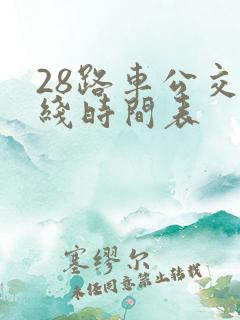 28路車公交
綫時間表
塞缪尔
未经同意禁止转载